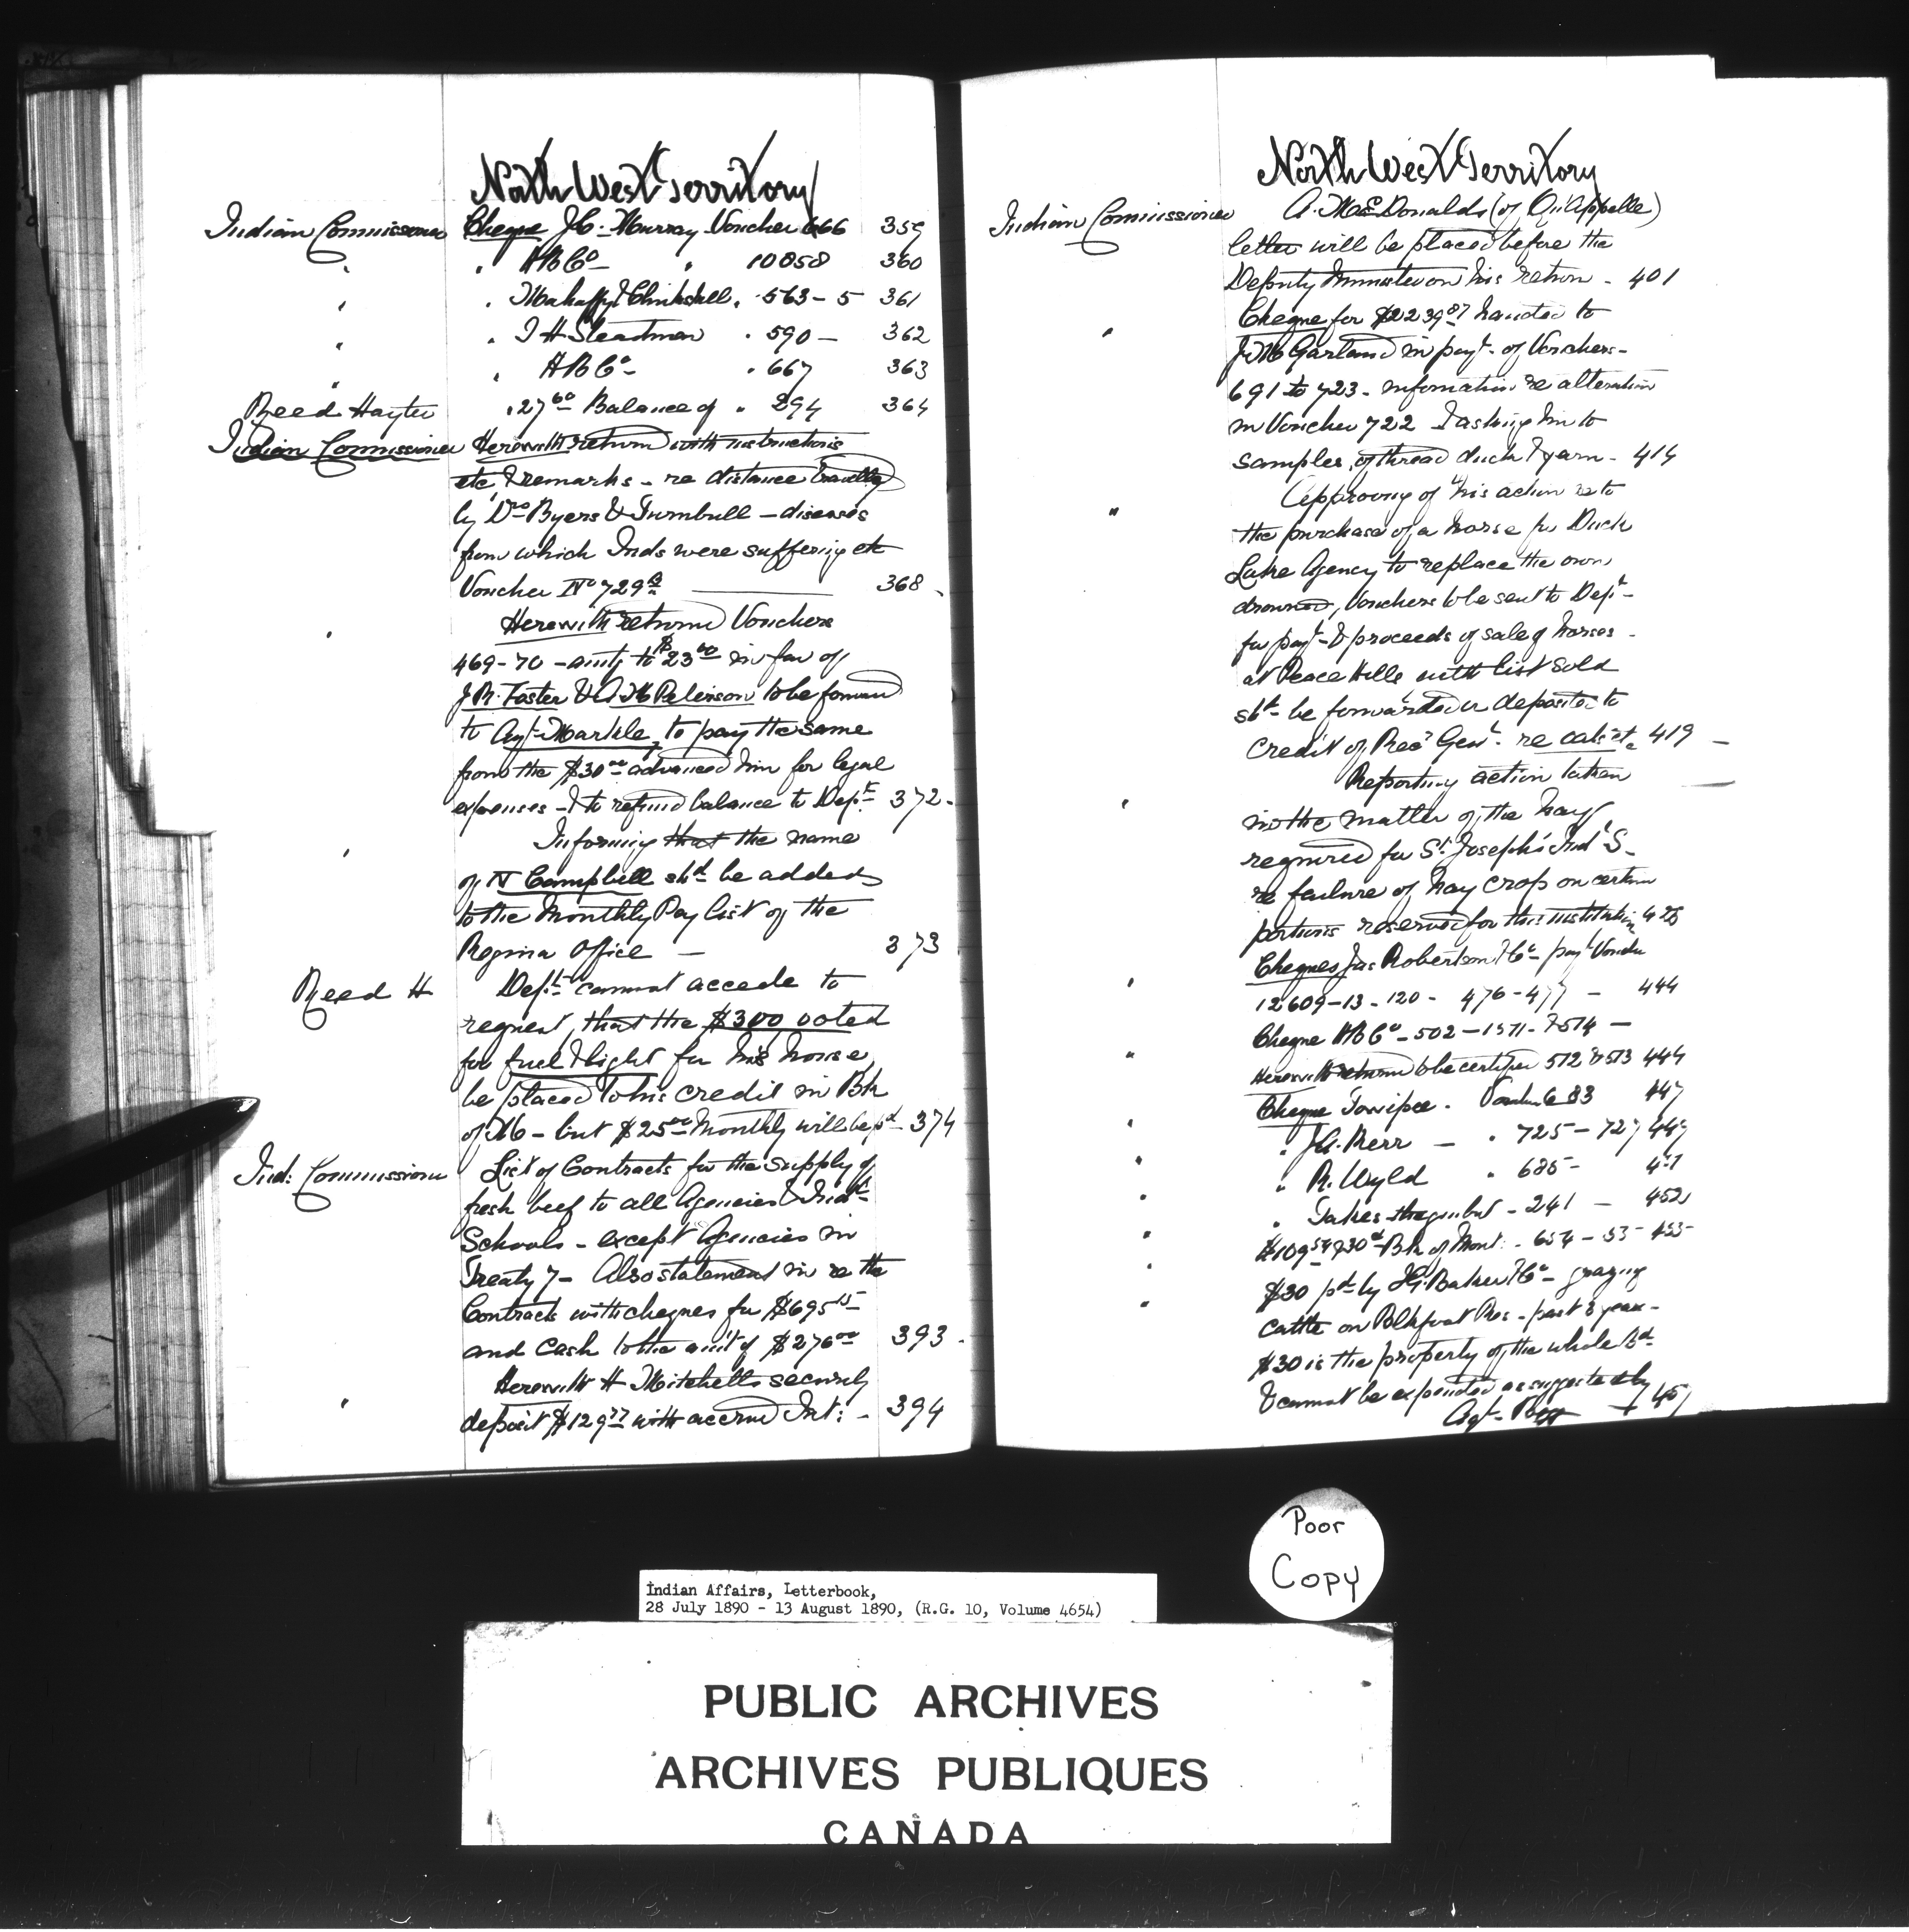 North West Territory
Indian Commissioner Cheque J.C. Murray Voucher 666 359
" " HBCo - " 10058 360
" " Mahaffy & Clinkskill " 563-5 361
" " J H Steadman " 590 - 362
" " HBCo - " 667 363
Reed Hayter " 27 60 Balance of " 294 364
Indian Commissioner Herewith return with instructions
etc & remarks - re distance travelled
by Drs Byers & Turnbull - diseases
from which Inds were suffering etc
Voucher No 729 368
" Herewith return Vouchers
469-70 - amtg to $23 00 in fav of
J R. Foster & to be forward
to Agt Markle, to pay the same
from the $30 00 advanced him for legal
expenses - & to refund balance to Dept 372 -
" Informing that the name
of N Campbell shd be added
to the Monthly Pay List of the
Regina Office - 373
Reed H Dept cannot accede to
request, that the $300 voted
for fuel & light for his house
be placed to his credit in Bk
of M - but $25 00 Monthly will be pd - 374
Ind: Commissioner List of Contracts for the supply of
fresh beef to all Agencies & Indl
Schools - except Agencies in
Treaty 7 - Also statement in re the
Contracts with cheques for $695 15
and Cash to the amt of $276 00 393 -
" Herewith H Mitchells security
deposit $129 77 with accrued Int: - 394
North West Territory
Indian Commissioner A. McDonalds (of Qu'Appelle)
letter will be placed before the
Deputy Minister on his return - 401
" Cheque for $2239 87 handed to
J M Garland in payt. of Vouchers -
691 to 723 - information re alteration
in Voucher 722 & asking him to
samples of thread duck & yarn - 414
" Approving of his action re to
the purchase of a horse for Duck
Lake Agency to replace the one
drowned, Vouchers to be sent to Dept -
for payt - & proceeds of sale of horses -
at Peace Hills with list sold
shd - be forwarded or deposited to
credit of Rec Genl. re 419 -
" Reporting action taken
in the matter of the hay
required for St. Joseph's Ind S -
re failure of hay crop on certain
portions reserved for this institution
" Cheques Jas Robertson & Co - payt Vouchr
12609-13-120 - 476-477 - 444
Cheque HBCo - 502-1371-&514 -
" Herewith return to be certified 512 & 513 444
Cheque Vouchr 683 447
" " J.G. Kerr - " 725-727 447
" " R. Wyld " 685 -
" " Takes the gun but - 241 - 452
" $109 54 & 30 d - Bk of Mont: - 654-55- 455-
" $30 pd by J.G. Baker & Co - grazing
" cattle on Blkfoot Res - past 3 years -
$30 is the property of the whole Bd -
& cannot be expended as suggested by
Agt - Begg
Poor
Copy
Indian Affairs, Letterbook,
28 July 1890 - 13 August 1890, (R.G. 10, Volume 4654)
PUBLIC ARCHIVES
ARCHIVES PUBLIQUES
CANADA